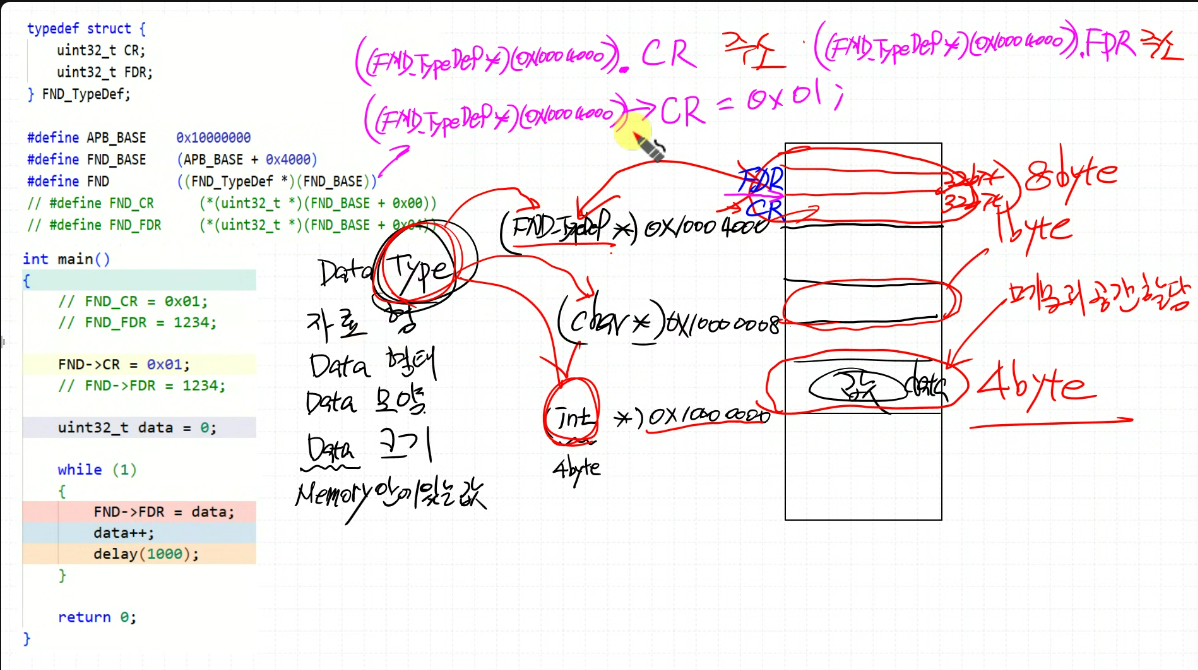 typedef struct {
uint32_t CR;
uint32_t FDR;
} FND_TypeDef;
#define APB_BASE 0x10000000
#define FND_BASE (APB_BASE + 0x4000)
#define FND ((FND_TypeDef *)(FND_BASE))
// #define FND_CR (*(uint32_t *)(FND_BASE + 0x00))
// #define FND_FDR (*(uint32_t *)(FND_BASE + 0x04))
int main()
{
// FND_CR = 0x01;
// FND_FDR = 1234;
FND->CR = 0x01;
// FND->FDR = 1234;
uint32_t data = 0;
while (1)
{
FND->FDR = data;
data++;
delay(1000);
}
return 0;
}
((FND_TypeDef *)(0x10004000)).CR 주소 ((FND_TypeDef *)(0x10004000)).FDR 주소
((FND_TypeDef *)(0x10004000))→CR = 0x01;
FDR
CR
8byte
(FND_TypeDef *) 0x10004000
1byte
Data Type
자료 형
Data 형태
Data 모양
Data 크기
Memory 안에 있는 값
(char *) 0x10000008
메모리 공간 할당
int *) 0x10000000
4byte
값 data
4byte